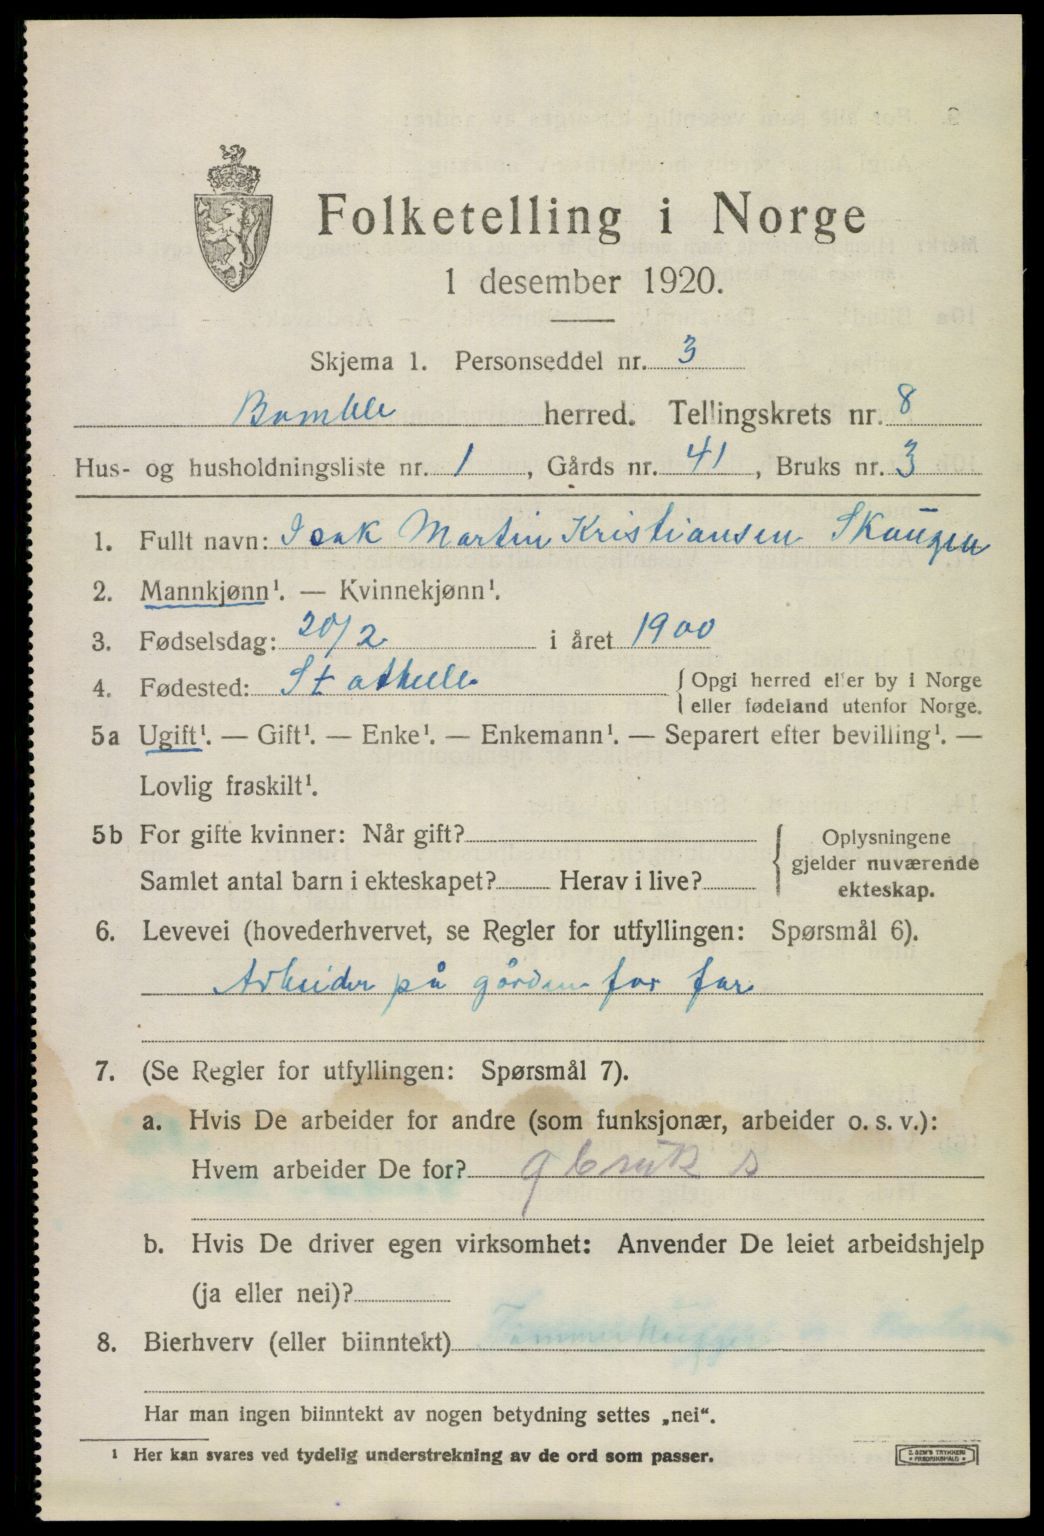 Folketelling i Norge
1 desember 1920.
Skjema 1. Personseddel nr. 3
Bamble herred. Tellingskrets nr. 8
Hus- og husholdningsliste nr. 1, Gårds nr. 41, Bruks nr. 3
1. Fullt navn: Isak Martin Kristiansen Skaugen
2. Mannkjønn¹. — Kvinnekjønn¹.
3. Fødselsdag: 20/2 i året 1900
4. Fødested: Stathelle { Opgi herred eller by i Norge
eller fødeland utenfor Norge.
5a Ugift¹. — Gift¹. — Enke¹. — Enkemann¹. — Separert efter bevilling¹. —
Lovlig fraskilt¹.
5b For gifte kvinner: Når gift?
Samlet antal barn i ekteskapet? Herav i live?
{ Oplysningene
gjelder nuværende
ekteskap.
6. Levevei (hovederhvervet, se Regler for utfyllingen: Spørsmål 6).
Arbeider på gården for far
7. (Se Regler for utfyllingen: Spørsmål 7).
a. Hvis De arbeider for andre (som funksjonær, arbeider o. s. v.):
Hvem arbeider De for? gbruk s
b. Hvis De driver egen virksomhet: Anvender De leiet arbeidshjelp
(ja eller nei)?
8. Bierhverv (eller biinntekt) Tømmerhugger
Har man ingen biinntekt av nogen betydning settes „nei“.
¹ Her kan svares ved tydelig understrekning av de ord som passer.